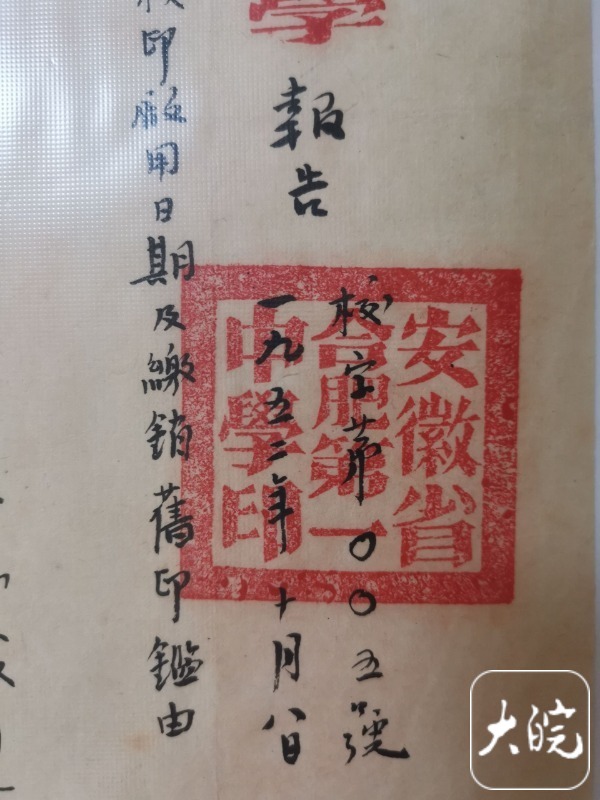 學
報告
安徽省
合肥第一
中學印
校字第〇〇五號
一九五二年十月八日
校印啟用日期及繳銷舊印鑑由
大皖